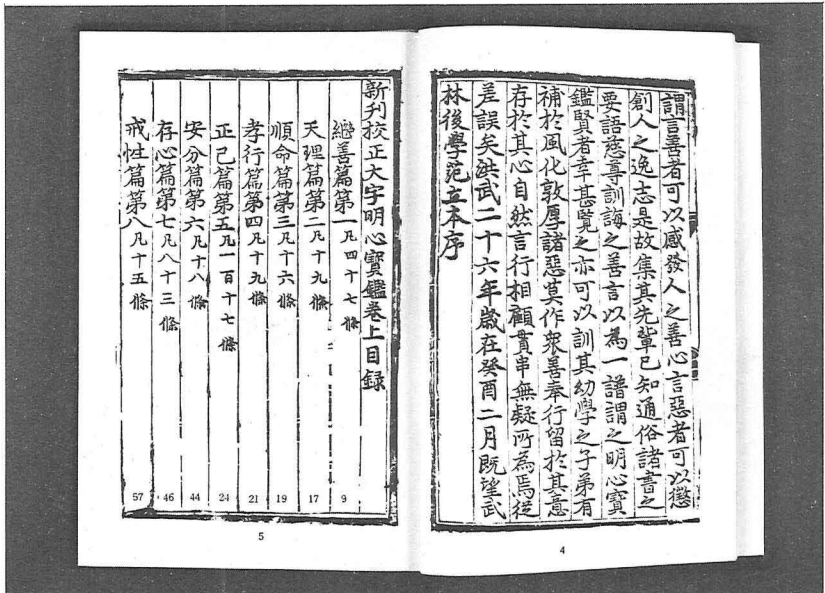 謂言善者可以感發人之善心言惡者可以懲
創人之逸志是故集其先輩已知通俗諸書之
要語慈尊訓誨之善言以為一譜謂之明心寶
鑑賢者幸甚覽之亦可以訓其幼學之子弟有
補於風化敦厚諸惡莫作衆善奉行留於其意
存於其心自然言行相顧貫串無疑所為焉從
差誤矣洪武二十六年歲在癸酉二月既望武
林後學范立本序
4
新刊校正大字明心寶鑑卷上目録
繼善篇第一凡四十七條 9
天理篇第二凡十九條 17
順命篇第三凡十六條 19
孝行篇第四凡十九條 21
正己篇第五凡一百十七條 24
安分篇第六凡十八條 44
存心篇第七凡八十三條 46
戒性篇第八凡十五條 57
5